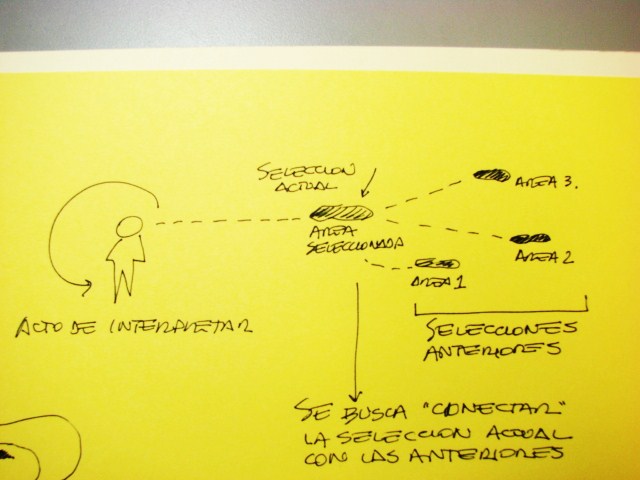 SELECCION
ACTUAL
AREA 3.
AREA
SELECCIONADA
AREA 2
AREA 1
ACTO DE INTERPRETAR
SELECCIONES
ANTERIORES
SE BUSCA "CONECTAR"
LA SELECCION ACTUAL
CON LAS ANTERIORES